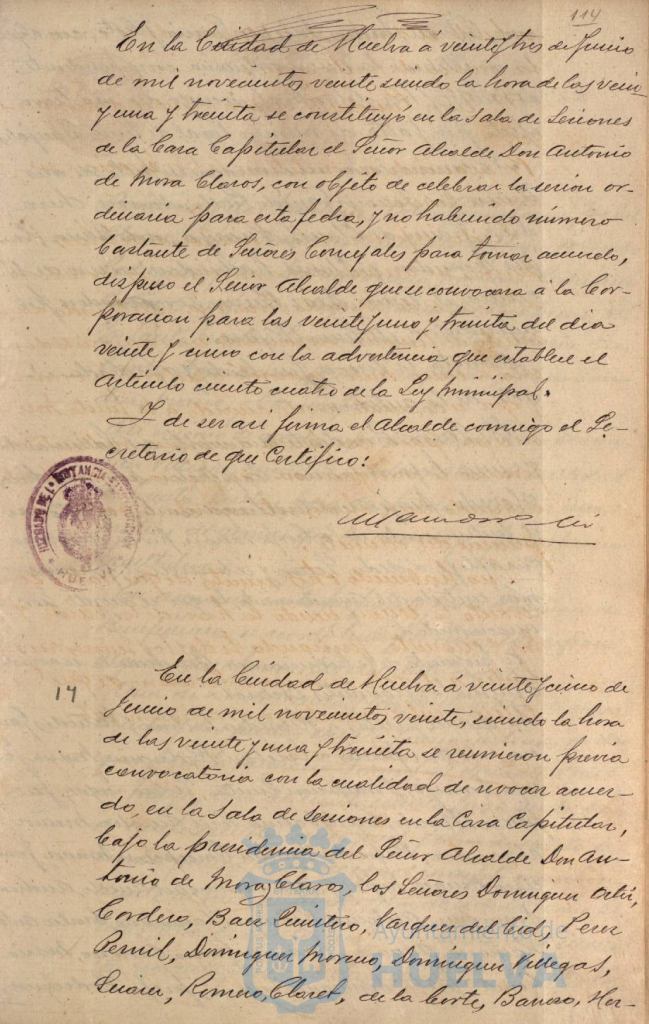 114
En la Ciudad de Huelva á veintytres de Junio
de mil novecientos veinte, siendo la hora de las vein-
y una y treinta se constituyó en la Sala de Sesiones
de la Casa Capitular el Señor Alcalde Don Antonio
de Mora Claros, con objeto de celebrar la sesion or-
dinaria para esta fecha, y no habiendo número
bastante de Señores Concejales para tomar acuerdo,
dispuso el Señor Alcalde que se convocara á la Cor-
poracion para las veinte y uno y treinta del dia
veinte y cinco con la advertencia que establece el
Artículo ciento cuatro de la Ley Municipal.
Y de ser asi firma el Alcalde conmigo el Se-
cretario de que Certifico:
JUZGADO DE 1ª INSTANCIA E INSTRUCCION
HUELVA
14
En la Ciudad de Huelva á veinte y cinco de
Junio de mil novecientos veinte, siendo la hora
de las veinte y una y treinta se reunieron previa
convocatoria con la cualidad de acuer-
do, en la Sala de sesiones en la Casa Capitular,
bajo la presidencia del Señor Alcalde Don An-
tonio de Mora y Claros, los Señores Dominguez Ortiz,
Cordero, Baez Quintero, Vazquez del Cid, Perez
Pernil, Dominguez Moreno, Dominguez Villegas,
Suarez, Romero, Claret, de la Corte, Barroso, Her-
Ayuntamiento de
HUELVA